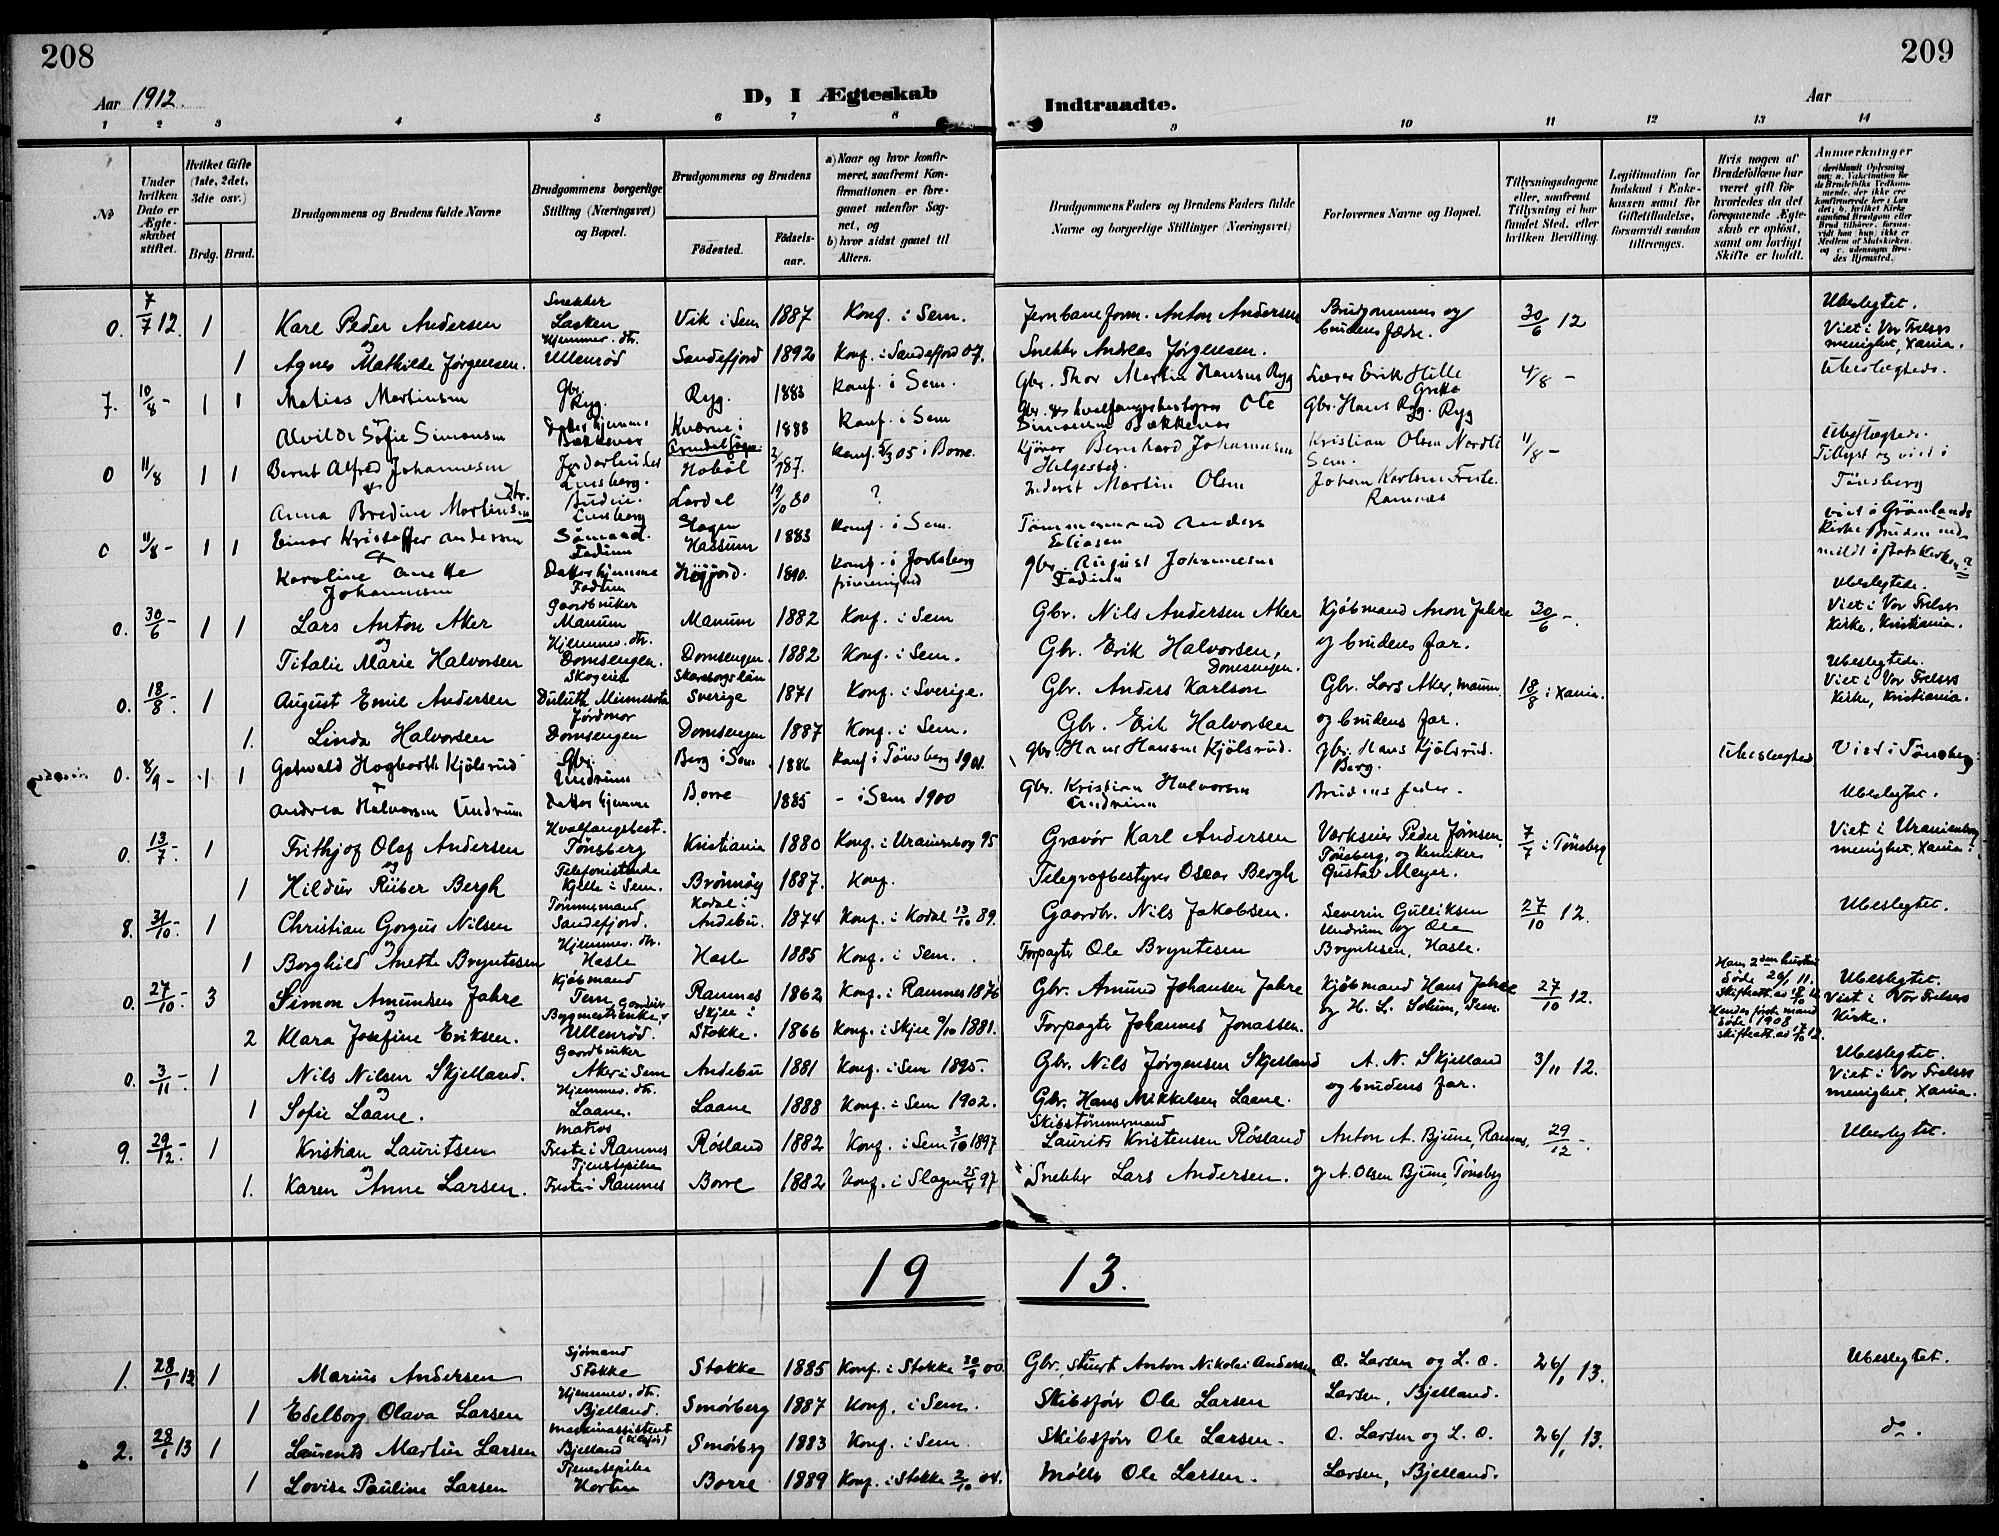 208
209
Aar 1912.
D, I Ægteskab
Indtraadte.
Aar
1 2 3 4 5 6 7 8 9 10 11 12 13 14
No
Under hvilken Dato er Ægteskabet stiftet.
Hvilket Gifte (1ste, 2det, 3die osv.)
Brdg. Brud.
Brudgommens og Brudens fulde Navne
Brudgommens borgerlige Stilling (Næringsvei) og Bopæl.
Brudgommens og Brudens
Fødested.
Fødselsaar.
a) Naar og hvor konfirmeret, saafremt Konfirmationen er foregaaet udenfor Sognet, og
b) hvor sidst gaaet til Alters.
Brudgommens Faders og Brudens Faders fulde Navne og borgerlige Stillinger (Næringsvei)
Forlovernes Navne og Bopæl.
Tillysningsdagene eller, saafremt Tillysning ei har fundet Sted, efter hvilken Bevilling.
Legitimation for Indskud i Enkekassen samt for Giftetilladelse, forsaavidt saadan tiltrænges.
Hvis nogen af Brudefolkene har været gift før hvorledes da det foregaaende Ægteskab er opløst, samt om lovligt Skifte er holdt.
Anmærkninger
0. 7/7 12. 1 Karl Peder Andersen Snekker Vik i Sem 1887 Konf. i Sem. Jernbaneform. Anton Andersen Brudgommens og brudens fædre. 30/6 12 Ubeslegtet. Viet i Vor Frelsers menighet, Xania.
og
1 Agnes Mathilde Jørgensen. Hjemmev. dtr. Ullenrød Sandefjord 1892 Konf. i Sandefjord 07. Snekker Andreas Jørgensen.
7. 10/8 - 1 1 Matias Martinsen Gbr. Ryg. Ryg. 1883 Konf. i Sem. Gbr. Thor Martin Hansen Ryg Lærer Erik Hille Gbr. Hans Ryg Ryg 4/8 -
Alvilde Sofie Simonsen 1888 Konf. i Sem Gbr. & hvalfangerbestyrer Ole Simonsen Bækkevar
0 11/8 1 1 Bernt Alfred Johannesen Hobøl Konf. 05 i Borre. Bernhard Johannesen Kristian Olsen Sem. 11/8 - Tillyst og viet i Tønsberg
Anna Bredine Martinsen Lardal ? Martin Olsen Ramnæs
0 11/8 - 1 1 Einar Kristoffer Andersen Sømand. Fadum 1883 Konf. i Sem. Tømmermand Anders Eliasen
Karoline Anette Johannesen Datter hjemme Fadum Høijord. 1890. Konf. i Gbr. August Johannesen Fadum
0. 30/6 - 1 1 Lars Anton Aker Gaardbruker Manum Manum 1882 Konf. i Sem Gbr. Nils Andersen Aker Kjøbmand Anon Jahre og brudens far. 30/6 -. Ubeslegtede. Viet i Vor Frelsers Kirke, Kristiania.
og
Titalie Marie Halvorsen Hjemmev. dtr. Domsengen. Domsengen. 1882 Konf. i Sem. Gbr. Erik Halvorsen, Domsengen.
0. 18/8 - 1 August Emil Andersen Skogeier Duluth Minnesota Skaraborgs län Sverige 1871 Konf. i Sverige. Gbr. Anders Karlson Gbr. Lars Aker, Manum og brudens far. 18/8 i Xania. Ubeslegtede. Viet i Vor Frelsers Kirke, Kristiania.
1. Linda Halvorsen Jordmor Domsengen Domsengen 1887 Konf. i Sem. Gbr. Erik Halvorsen
0. 8/9 - 1 1 Kjølsrud Gbr. Undrum Berg i Sem 1886 Konf. i Tønsberg 1901. Gbr. Hans Hansen Kjølsrud. Gbr. Hans Kjølsrud. Berg. Ubeslegtede Viet i Tønsberg
Andrea Halvorsen Undrum Datter hjemme Borre 1885 - i Sem 1900 Gbr. Kristian Halvorsen Undrum Brudens fader.
0. 13/7 - 1 Frithjof Olaf Andersen Hvalfangstbest. Tønsberg Kristiania 1880 Konf. i Uranienborg 95 Gravør Karl Andersen Værkseier Peder Jørnsen, Tønsberg, og Kemiker Gustav Meyer. 7/7 i Tønsberg Ubeslegtet. Viet i Uranienborg menighet, Xania.
og
1 Hildur Rüber Bergh Telefonistinde Kjelle i Sem. Brønnøy 1887. Konf. Telegrafbestyrer Oscar Bergh
8. 31/10 - 1 Christian Gorgus Nilsen Tømmermand Sandefjord. Kodal i Andebu. 1874 Konf. i Kodal 13/10 89. Gaardbr. Nils Jakobsen. Severin Gulliksen Undrum og Ole Bryntesen, Hasle. 27/10 12. Ubeslegtet.
og
1 Borghild Anette Bryntesen Hjemmev. dtr. Hasle Hasle 1885 Konf. i Sem. Forpagter Ole Bryntesen
0. 27/10 - 3 Simon Amundsen Jahre Kjøbmand Tem Ramnes 1862 Konf. i Ramnes 1876 Gbr. Amund Johansen Jahre Kjøbmand Hans Jahre og H. L. Solum, Sem. 27/10 12. Hans 2den hustru døde 20/1 11. Hendes første mand døde 1908 Ubeslegtet. Viet i Vor Frelsers Kirke.
og
2 Klara Josefine Eriksen. Ullenrød. Skjee i Stokke. 1866 Konf. i Skjee 9/10 1881. Forpagter Johannes Jonassen.
0. 3/11 - 1 Nils Nilsen Skjelland. Gaardbruker Aker i Sem Andebu 1881 Konf. i Sem 1895. Gbr. Nils Jørgensen Skjelland A. N. Skjelland og brudens far. 3/11 12. Ubeslegtet. Viet i Vor Frelsers menighet, Xania.
og
1 Sofie Laane. Hjemmev. dtr. Laane. Laane 1888 Konf. i Sem 1902. Gbr. Hans Mikkelsen Laane.
9. 29/12 - 1 Kristian Lauritsen Matros Freste i Ramnes Røsland 1882 Konf. i Sem 3/10 1897 Skibstømmermand Laurits Kristensen Røsland Anton A. Bjune, Ramnes, og A. Olsen Bjune, Tønsberg 29/12 - Ubeslegtet.
og
1. Karen Anne Larsen. Tjenestepike Freste i Ramnes Borre 1882 Konf. i Slagen 25/4 97 Snekker Lars Andersen.
19 13.
1. 28/1 13 1 Marius Andersen Sjømand Stokke Stokke 1885 Konf. i Stokke 30/9 00. Gbr., stuert Anton Nikolai Andersen O. Larsen og L. O. Larsen, Bjelland. 26/1 13. Ubeslegtet.
1 Edelborg Olava Larsen Hjemmev. dtr. Bjelland. Smørberg 1887 Konf. i Sem. Skibsfører Ole Larsen
2. 28/1 13 1 Laurents Martin Larsen Maskinassistent Bjelland Smørberg 1883 Konf. i Sem Skibsfører Ole Larsen. O. Larsen og L. O. Larsen, Bjelland. 26/1 13. do.
1 Lovise Pauline Larsen Tjenestepike Horten Borre 1889 Konf. i Stokke 2/10 04. Møller Ole Larsen.